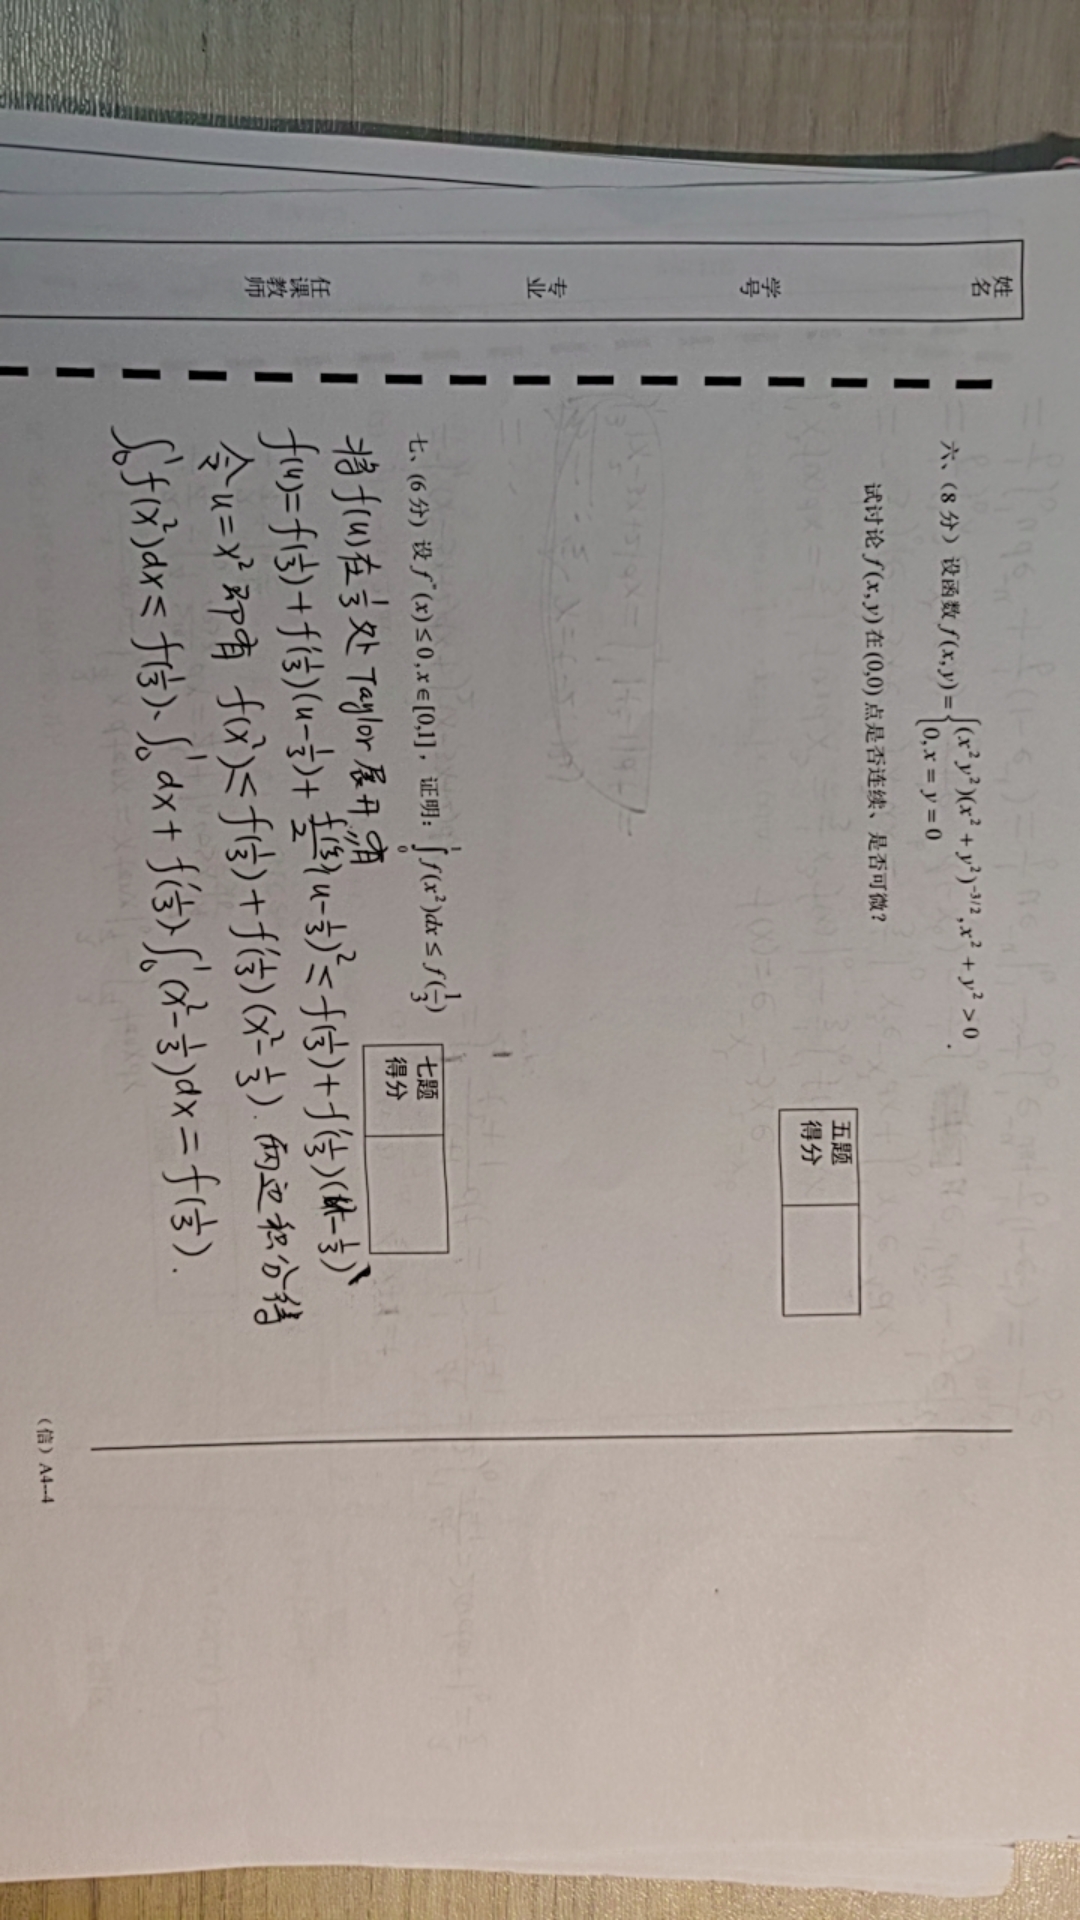 姓名
学号
专业
任课教师
六、(8 分) 设函数 f(x,y)={(x²y²)(x²+y²)^{-3/2}, x²+y²>0
0, x=y=0 .
试讨论 f(x,y) 在 (0,0) 点是否连续、是否可微?
五题得分
七、(6 分) 设 f″(x)≤0, x∈[0,1], 证明: ∫₀¹ f(x²)dx ≤ f(1/3)
七题得分
将 f(u) 在 1/3 处 Taylor 展开有
f(u)=f(1/3)+f′(1/3)(u-1/3)+f″(ξ)/2(u-1/3)²≤f(1/3)+f′(1/3)(u-1/3)
令 u=x² 即有 f(x²)≤f(1/3)+f′(1/3)(x²-1/3). 两边积分得
∫₀¹f(x²)dx≤f(1/3)·∫₀¹dx+f′(1/3)·∫₀¹(x²-1/3)dx=f(1/3).
(信) A4--4